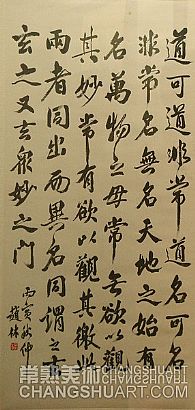 道可道非常道名可名
非常名無名天地之始有
名萬物之母常无欲以觀
其妙常有欲以觀其徼此
兩者同出而異名同謂之玄
玄之又玄衆妙之門
丙寅秋仲
趙林
CHANGSHUART.COM
CHANGSHUART.COM